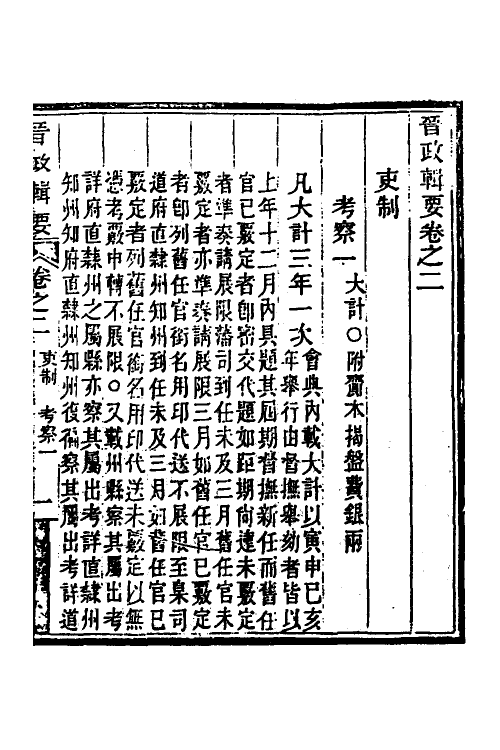 晉政輯要卷之二
吏制
考察一 大計〇附齎本揭盤費銀兩
凡大計三年一次
會典內載大計以寅申巳亥
年舉行由督撫舉劾者皆以
上年十二月內具題其屆期督撫新任而舊任
官已覈定者卽密交代題如距期尚遠未覈定
者準奏請展限藩司到任未及三月舊任官未
覈定者亦準奏請展限三月如舊任官已覈定
者卽列舊任官銜名用印代送不展限至臬司
道府直隸州知州到任未及三月如舊任官已
覈定者列舊任官銜名用印代送未覈定以無
憑考覈申轉不展限〇又載州縣察其屬出考
詳府直隸州之屬縣亦察其屬出考詳直隸州
知州知府直隸州知州復徧察其屬出考詳道
晉政輯要 卷之二 吏制 考察一 一